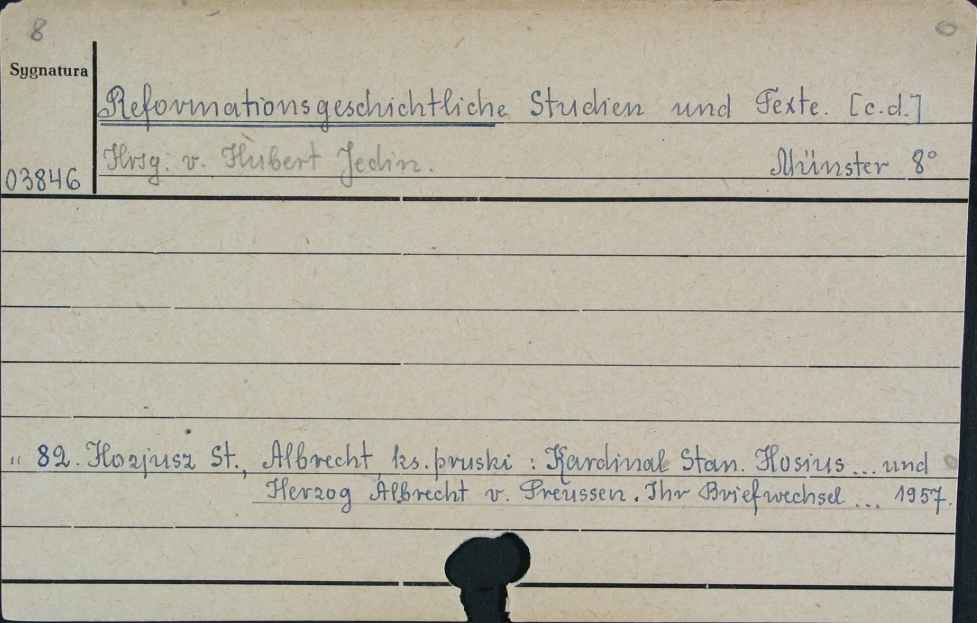 8
Sygnatura
Reformationsgeschichtliche Studien und Texte. [c.d.]
Hrsg. v. Hubert Jedin. Münster 8°
03846
" 82. Hozjusz St., Albrecht, ks. pruski : Kardinal Stan. Hosius ... und
Herzog Albrecht v. Preussen. Ihr Briefwechsel ... 1957.